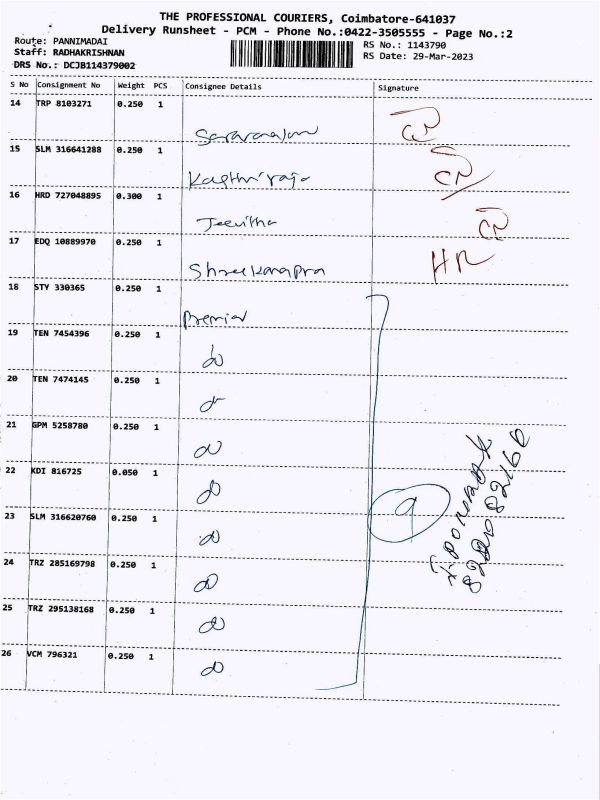 THE PROFESSIONAL COURIERS, Coimbatore-641037
Delivery Runsheet - PCM - Phone No.:0422-3505555 - Page No.:2
Route: PANNIMADAI
Staff: RADHAKRISHNAN
DRS No.: DCJB114379002
RS No.: 1143790
RS Date: 29-Mar-2023
S No Consignment No Weight PCS Consignee Details Signature
14 TRP 8103271 0.250 1
15 SLM 316641288 0.250 1
16 HRD 727048895 0.300 1 Jeevitha
17 EDQ 10889970 0.250 1 HR
18 STY 330365 0.250 1 Premier
19 TEN 7454396 0.250 1
20 TEN 7474145 0.250 1
21 GPM 5258780 0.250 1
22 KDI 816725 0.050 1
23 SLM 316620760 0.250 1 9
24 TRZ 285169798 0.250 1
25 TRZ 295138168 0.250 1
26 VCM 796321 0.250 1